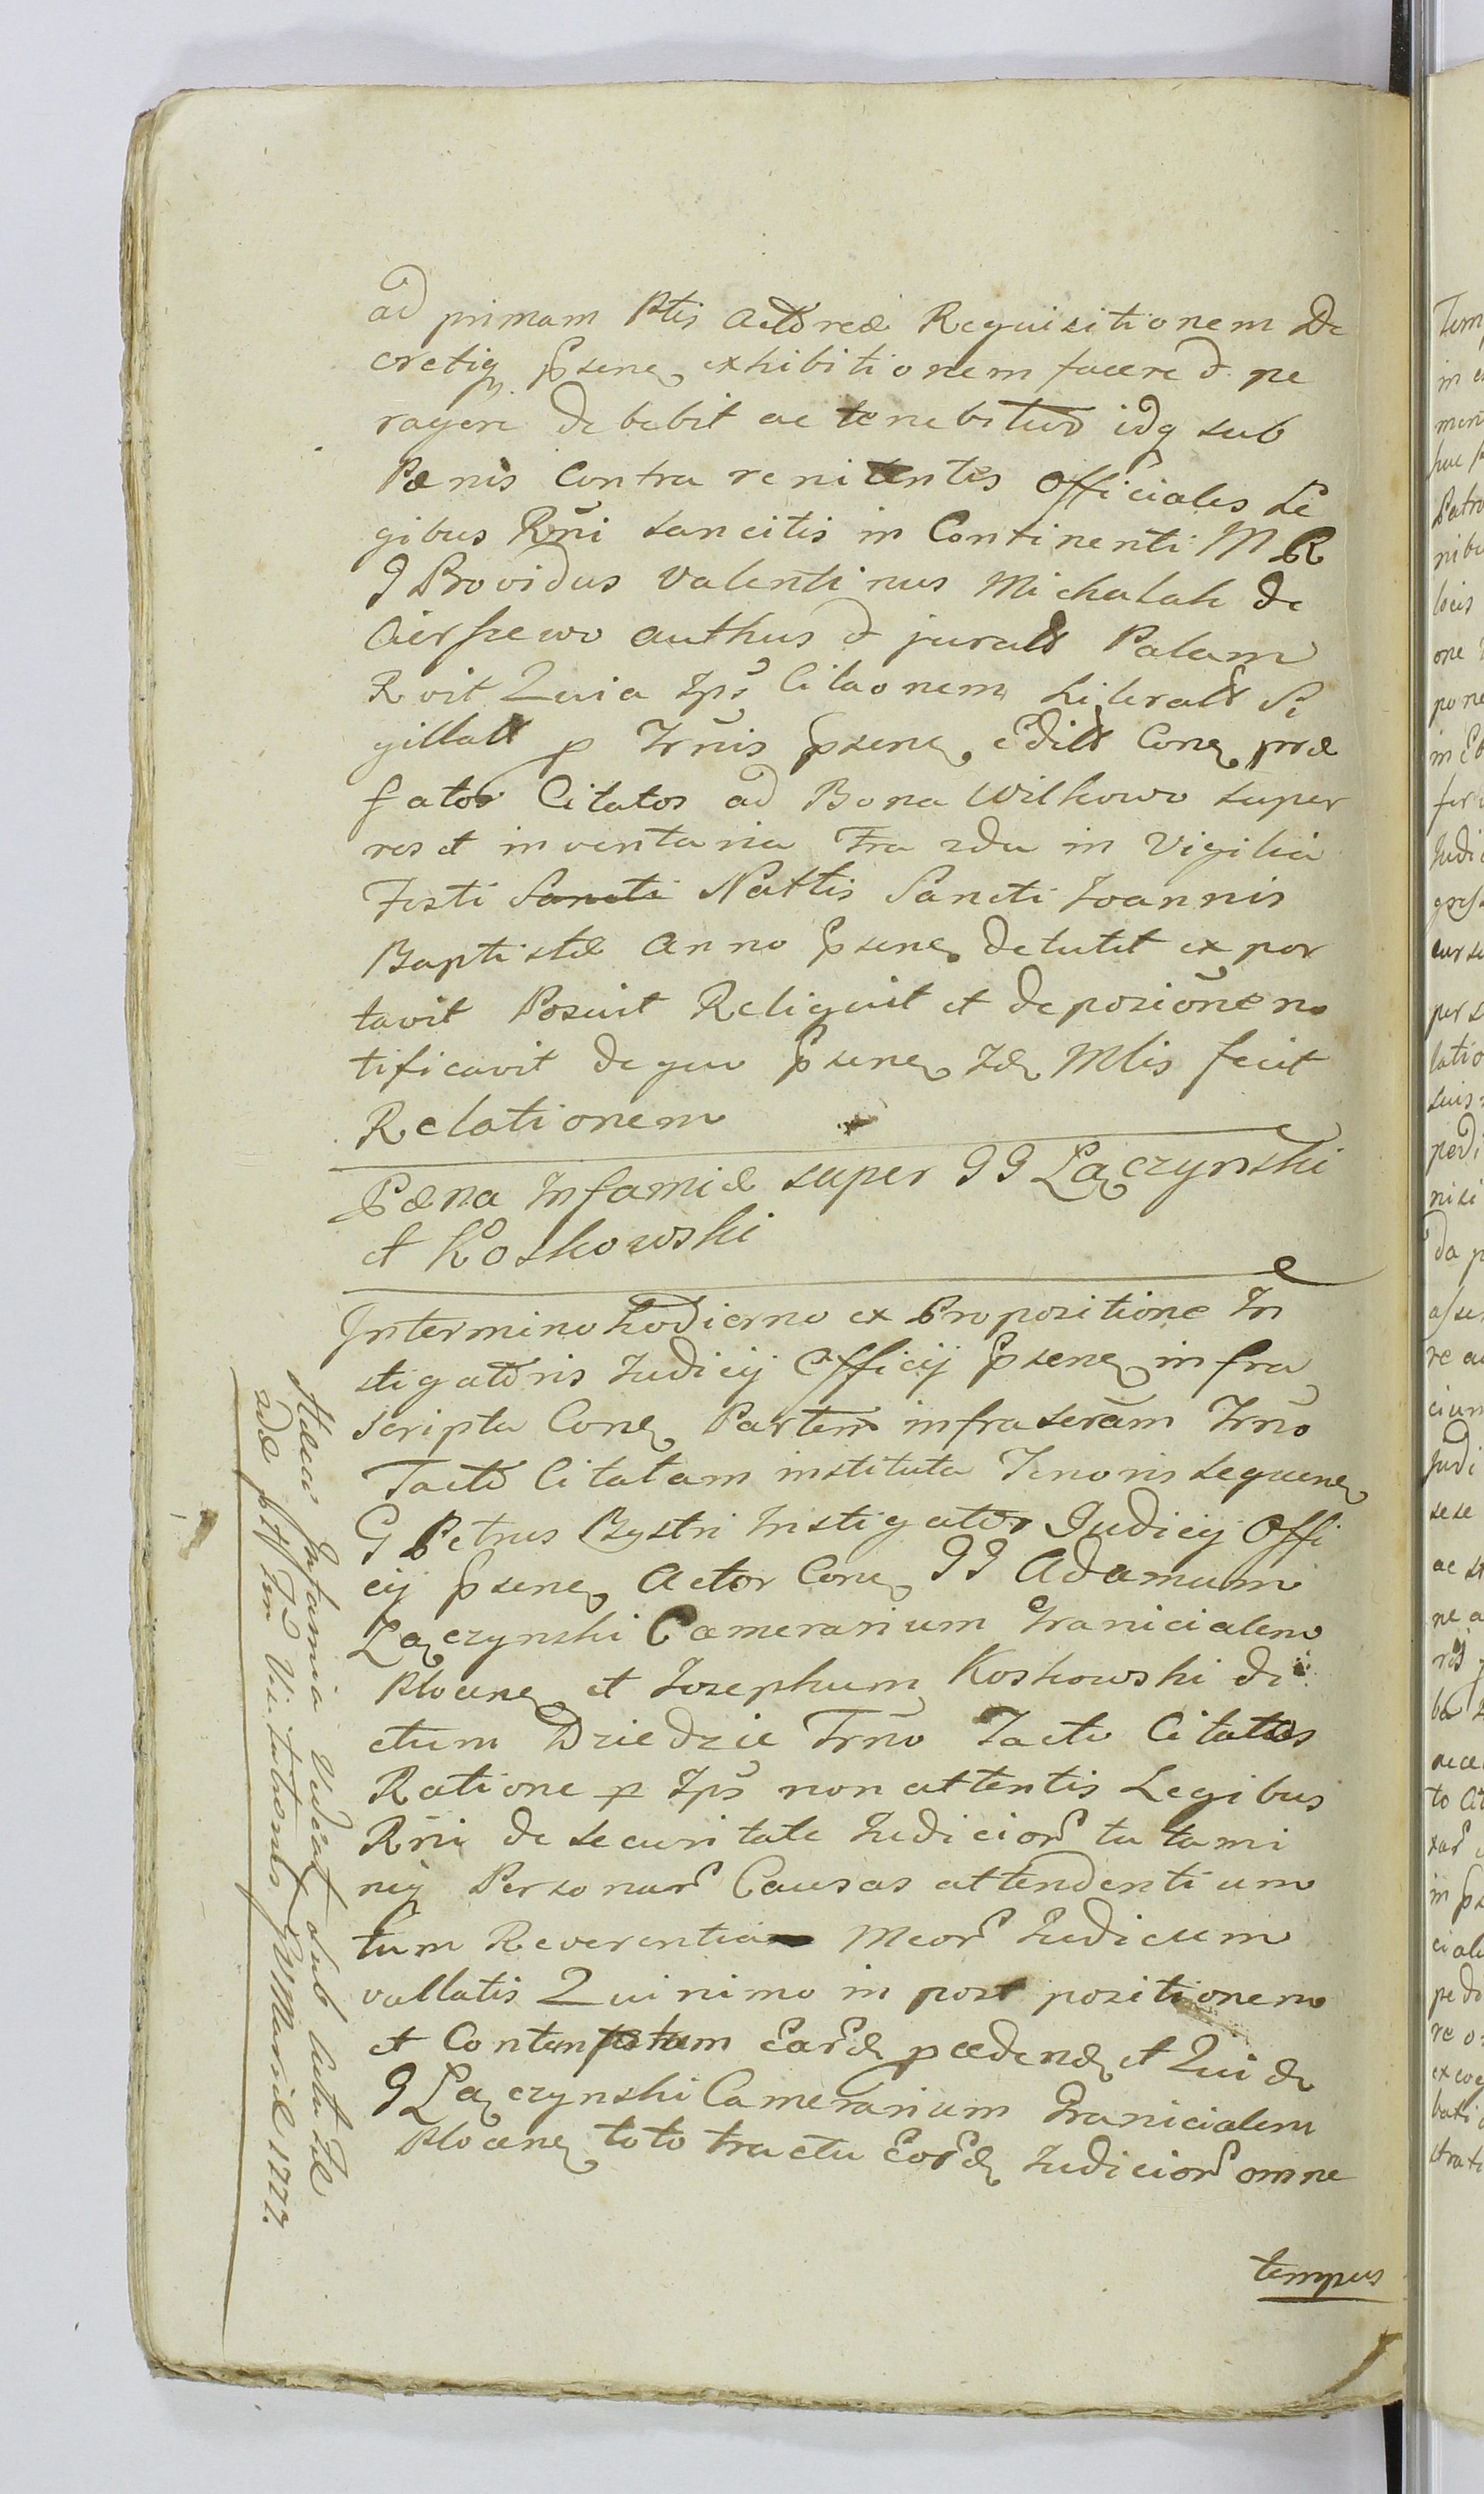 ad primam Ptis Actoreæ Requisitionem De
cretiq, psene, exhibitionem facere & pe
ragere debebit ac tenebitur idq sub
Pænis Contra renitentes Officiales Le
gibus Rñi sancitis in Continenti M R
G Providus Valentinus Michalak de
Cierszewo authus & jurats Palam
R vit Quia Ips Citaonem Literals Si
gillats p Trñis psene, edits Cone, præ
fatos Citatos ad Bona Wilkowo super
res et inventaria Fra 2da in Vigilia
Festi Sancti Nattis Sancti Joannis
Baptistæ Anno psene, detulit expor
tavit Posuit Reliquit et de posiõne no
tificavit de quo psene, Mlis fecit
Relationem
Pæna Infamiæ super GG Łączynski
et Koskowski
Intermino hodierno ex Propositione In
stigatoris Judicij Officij psene, infra
scripta Cone, Partem infraserãm Trño
Tacto Citatam instituta Tenoris sequene,
G Petrus Bystri Instigator Judicij Offi
cij psene, Actor Cone, GG Adamum
Łączynski Camerarium Granicialem
Plocene, et Josephum Koskowski di
ctum Dziedzic Trño Tacto Citatos
Ratione p Ips non attentis Legibus
Rñi de securitate Judicior tutami
niq Personar Causas attendentium
tum Reverentia Meor Judicium
vallatis Quinimo in post positionem
et Contemptum Eard, pædend, et Qui de
G Łączynski Camerarium Granicialem
Plocene, toto tractu Eord, Judicior omne
tempus
Hæc Infamia sub
1777.